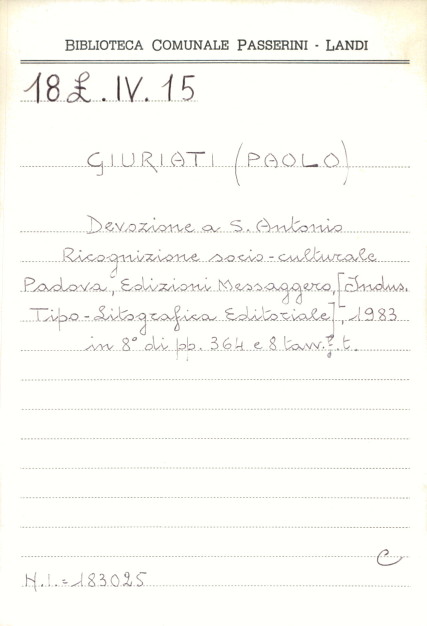 BIBLIOTECA COMUNALE PASSERINI - LANDI
18 £. IV. 15
GIURIATI (PAOLO)
Devozione a S. Antonio
Ricognizione socio-culturale
Padova, Edizioni Messaggero, [Indus.
Tipo-Litografica Editoriale], 1983
in 8° di pp. 364 e 8 tavv. f. t.
C
N.I.=183025